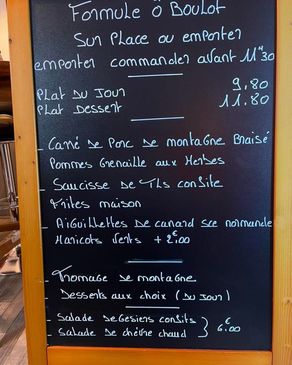 Formule ô Boulot
Sur Place ou emporter
emporter commander avant 11H30
Plat du Jour 9.80
Plat Dessert 11.80
- Carré de Porc de montagne Braisé
Pommes Grenaille aux Herbes
- Saucisse de Tls confite
Frites maison
- Aiguillettes de canard sce normande
Haricots Verts + 2€00
- Fromage de montagne
- Desserts aux choix (Du Jour)
- Salade de Gesiers confits
- Salade de chèvre chaud } 6€00